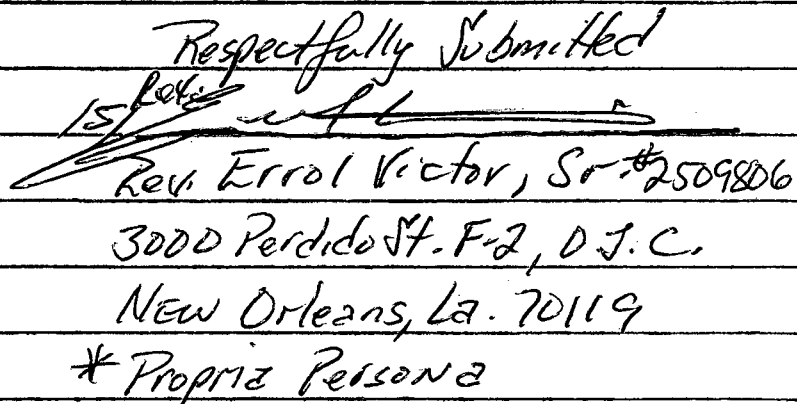 Respectfully Submitted
/s/ Rev.
Rev. Errol Victor, Sr. #2509806
3000 Perdido St. F-2, O.J.C.
New Orleans, La. 70119
* Propria Persona